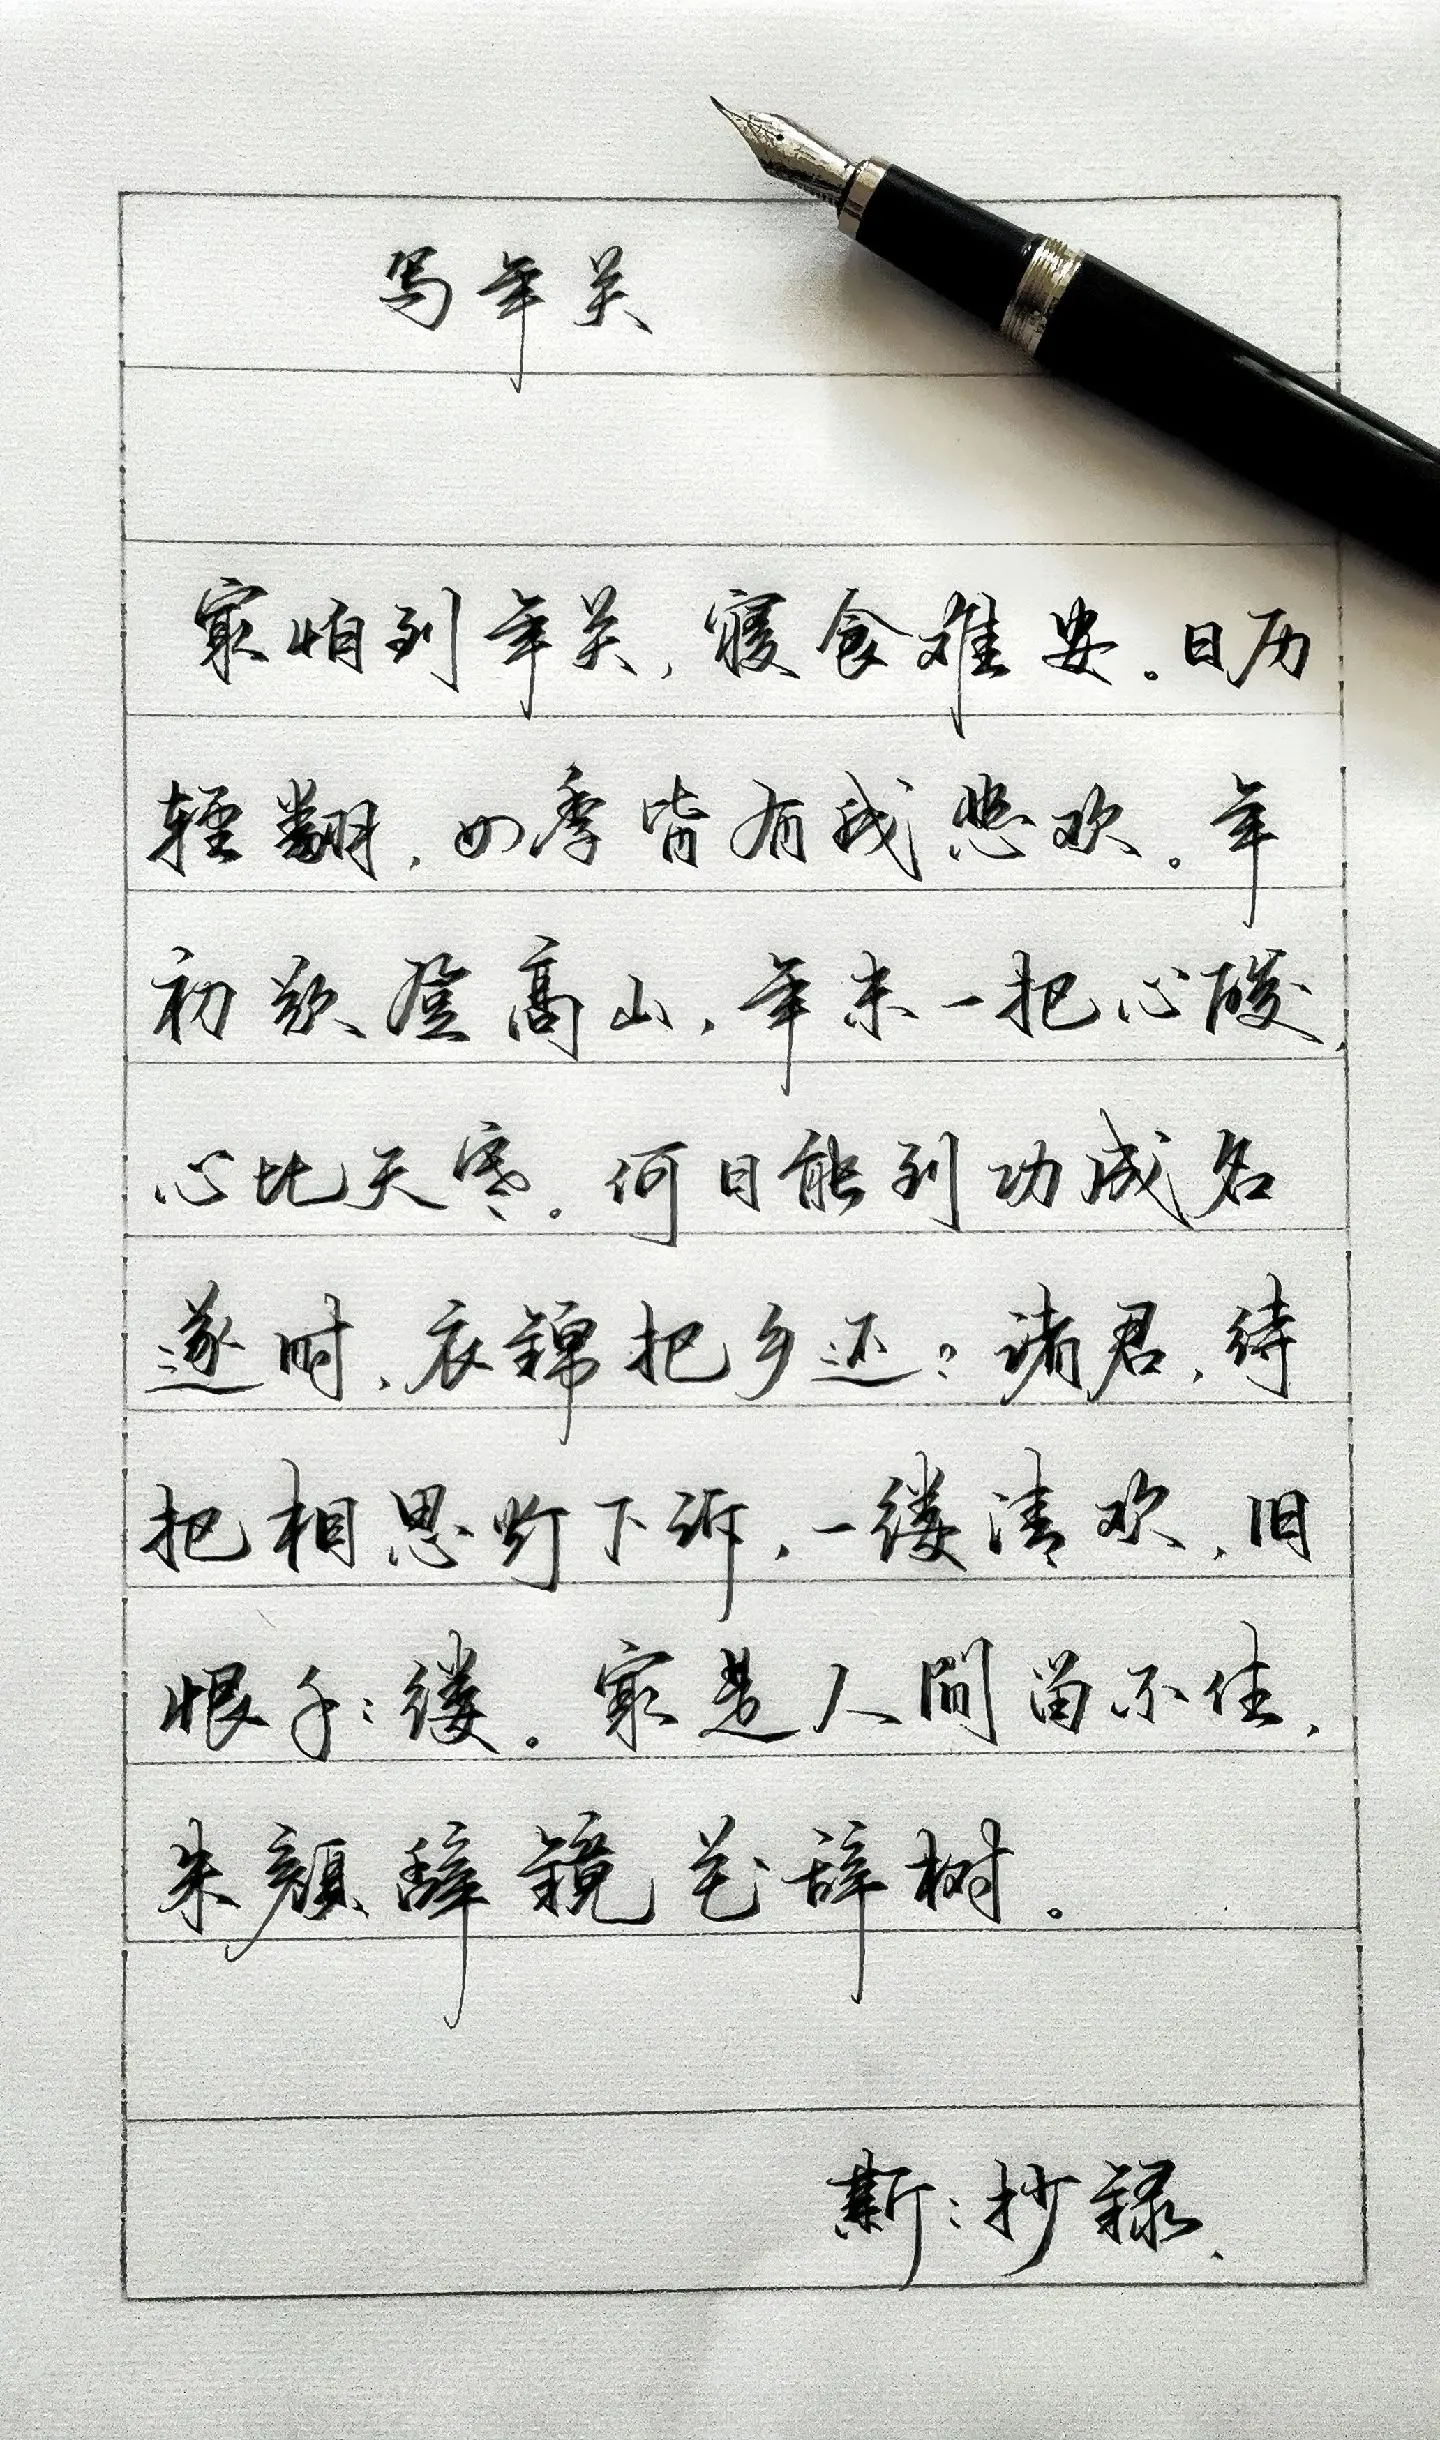 写年关
最怕到年关，寝食难安。日历
轻翻，四季皆有我悲欢。年
初欲登高山，年末一把心酸，
心比天寒。何日能到功成名
遂时，衣锦把乡还？诸君，待
把相思灯下诉，一缕清欢，旧
恨千千缕。最是人间留不住，
朱颜辞镜花辞树。
斯斯抄录.